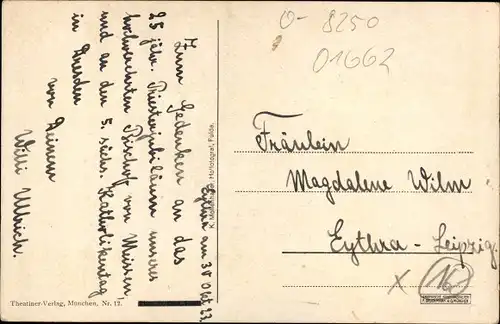 Eythra am 30 Okt 23.
Zum Gedenken an das
25 jähr. Priesterjubiläum unseres
hochwürdigsten Bischof von Meissen,
und an den 5. sächs. Katholikentag
in Dresden
von Deinem
Willi Ullrich.
Theatiner-Verlag, München, Nr. 12.
Hofphotograf, Fulda.
0-8250
01662
Fräulein
Magdalene Wilm
Eythra-Leipzig.